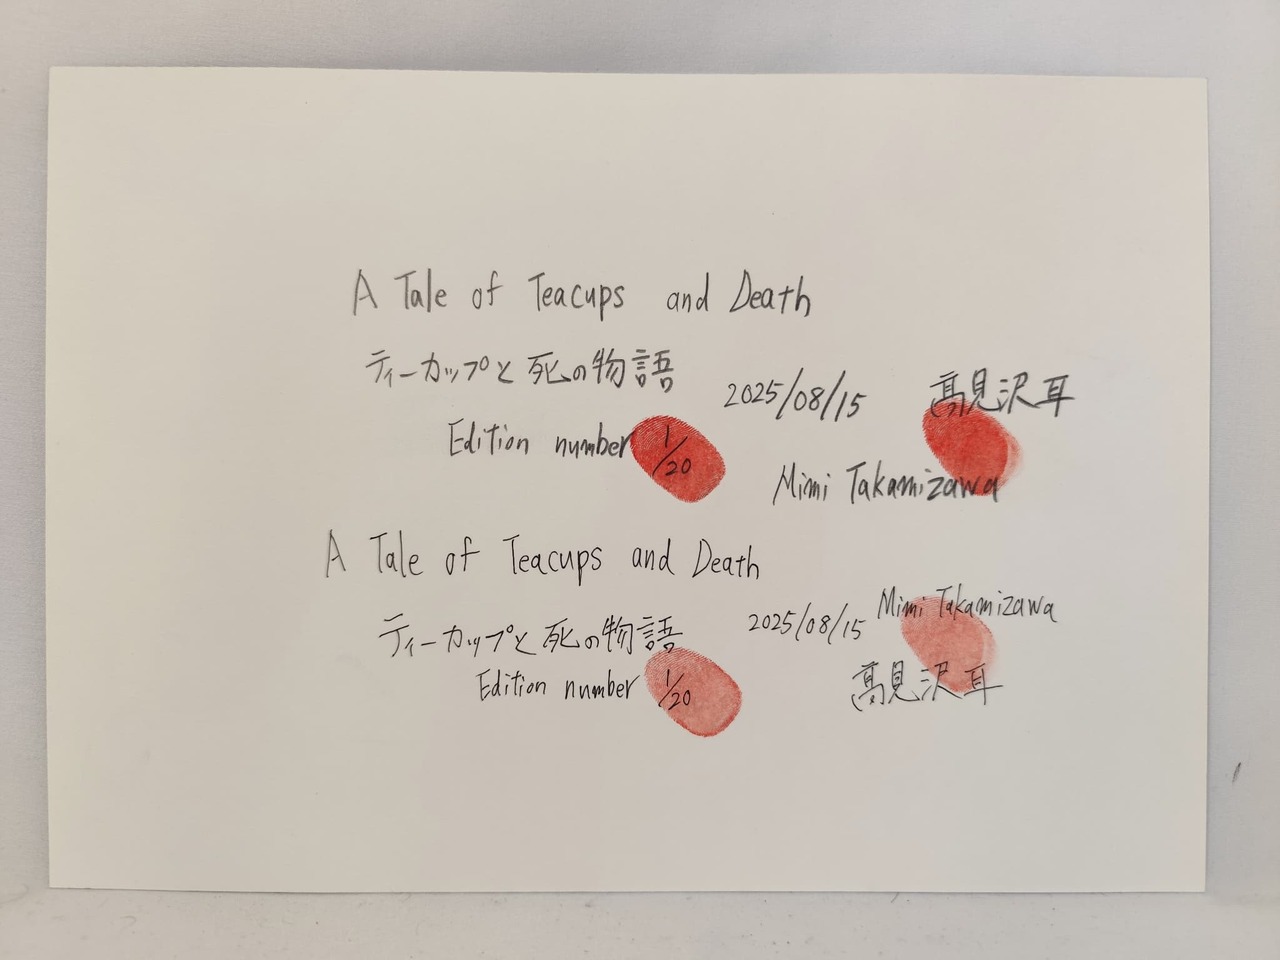 A Tale of Teacups and Death
ティーカップと死の物語
2025/08/15
髙見沢耳
Edition number 1/20
Mimi Takamizawa
A Tale of Teacups and Death
ティーカップと死の物語
2025/08/15
Mimi Takamizawa
Edition number 1/20
髙見沢耳